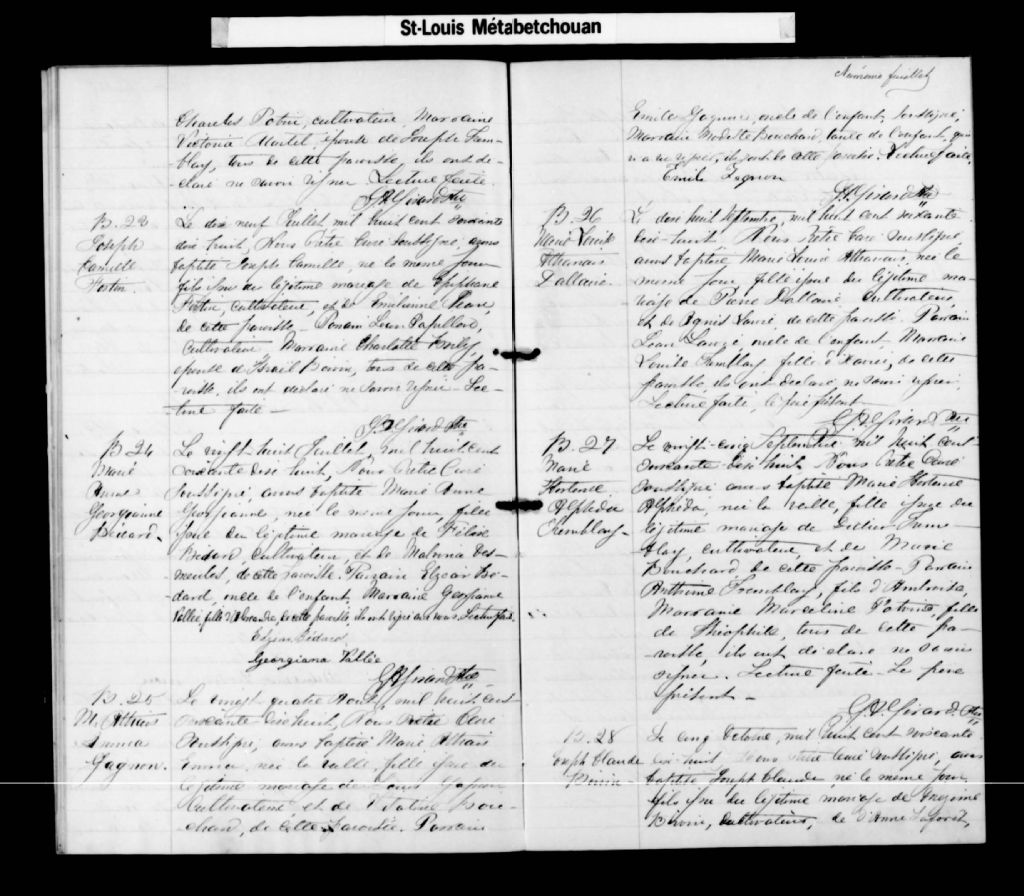 St-Louis Métabetchouan
Charles Potvin, cultivateur Marraine
Victoria Martel, épouse de Joseph Trem-
blay, tous de cette paroisse, ils ont dé-
claré ne savoir signer. Lecture faite.
B. 23
Joseph
Camille
Fortin.
Le dix neuf Juillet mil huit cent soixante
dix huit, Nous Prêtre Curé soussigné, avons
baptisé Joseph Camille, né le même jour
fils issu du légitime mariage de
Fortin, cultivateur, et de Emilienne
de cette paroisse. Parrain
cultivateur, Marraine Charlotte
épouse d'Israël tous de cette pa-
roisse, ils ont déclaré ne savoir signer Lec-
ture faite —
B. 24
Marie
Anne
Georgianne
Bédard.
Le vingt huit Juillet, mil huit cent
soixante dix huit, Nous Prêtre Curé
soussigné, avons baptisé Marie Anne
Georgianne, née le même jour, fille
issue du légitime mariage de
Bédard cultivateur, et de Malvina Des-
meules, de cette paroisse. Parrain Elzéar Bé-
dard, oncle de l'enfant, Marraine Georgianna
Vallée, fille de cette paroisse, ils ont signé avec nous. Lecture faite.
Elzear Bédard
Georgiana Vallée
B. 25
M. Athaïs
Emma
Gagnon.
Le vingt quatre Août, mil huit cent
soixante dix huit, Nous Prêtre Curé
soussigné, avons baptisé Marie Athaïs
Emma, née la veille, fille issue du
légitime mariage de Louis Gagnon
cultivateur et de Bou-
chard, de cette paroisse. Parrain
feuillet
Emile Gagnon, oncle de l'enfant, soussigné,
Marraine Modeste Bouchard, tante de l'enfant, qui
n'a su signer, ils sont de cette paroisse. Lecture faite.
Emile Gagnon
B. 26
Marie Louise
Athanaïs
Dallaire
Le dix huit Septembre, mil huit cent soixante
dix-huit Nous Prêtre Curé soussigné,
avons baptisé Marie Louise Athanaïs, née le
même jour, fille issue du légitime ma-
riage de Pierre Dallaire, cultivateur,
et de Agnès de cette paroisse. Parrain
oncle de l'enfant. Marraine
Louise Tremblay fille de cette
paroisse, ils ont déclaré ne savoir signer.
Lecture faite, le père présent —
B. 27
Marie
Hortense
Alphéda
Tremblay.
Le vingt-cinq Septembre mil huit cent
soixante dix huit Nous Prêtre Curé
soussigné avons baptisé Marie Hortense
Alphéda, née la veille, fille issue du
légitime mariage de Trem-
blay, cultivateur, et de Marie
Bouchard de cette paroisse — Parrain
Anthime Tremblay, fils d'Ambroise,
Marraine Marceline Potvin, fille
de Théophile, tous de cette pa-
roisse, ils ont déclaré ne savoir
signer. Lecture faite. Le père
présent —
B. 28
Joseph Claude
Le cinq Octobre, mil huit cent soixante
dix-huit Nous Prêtre Curé soussigné, avons
baptisé Joseph Claude, né le même jour,
fils issu du légitime mariage de Onézime
cultivateur, de